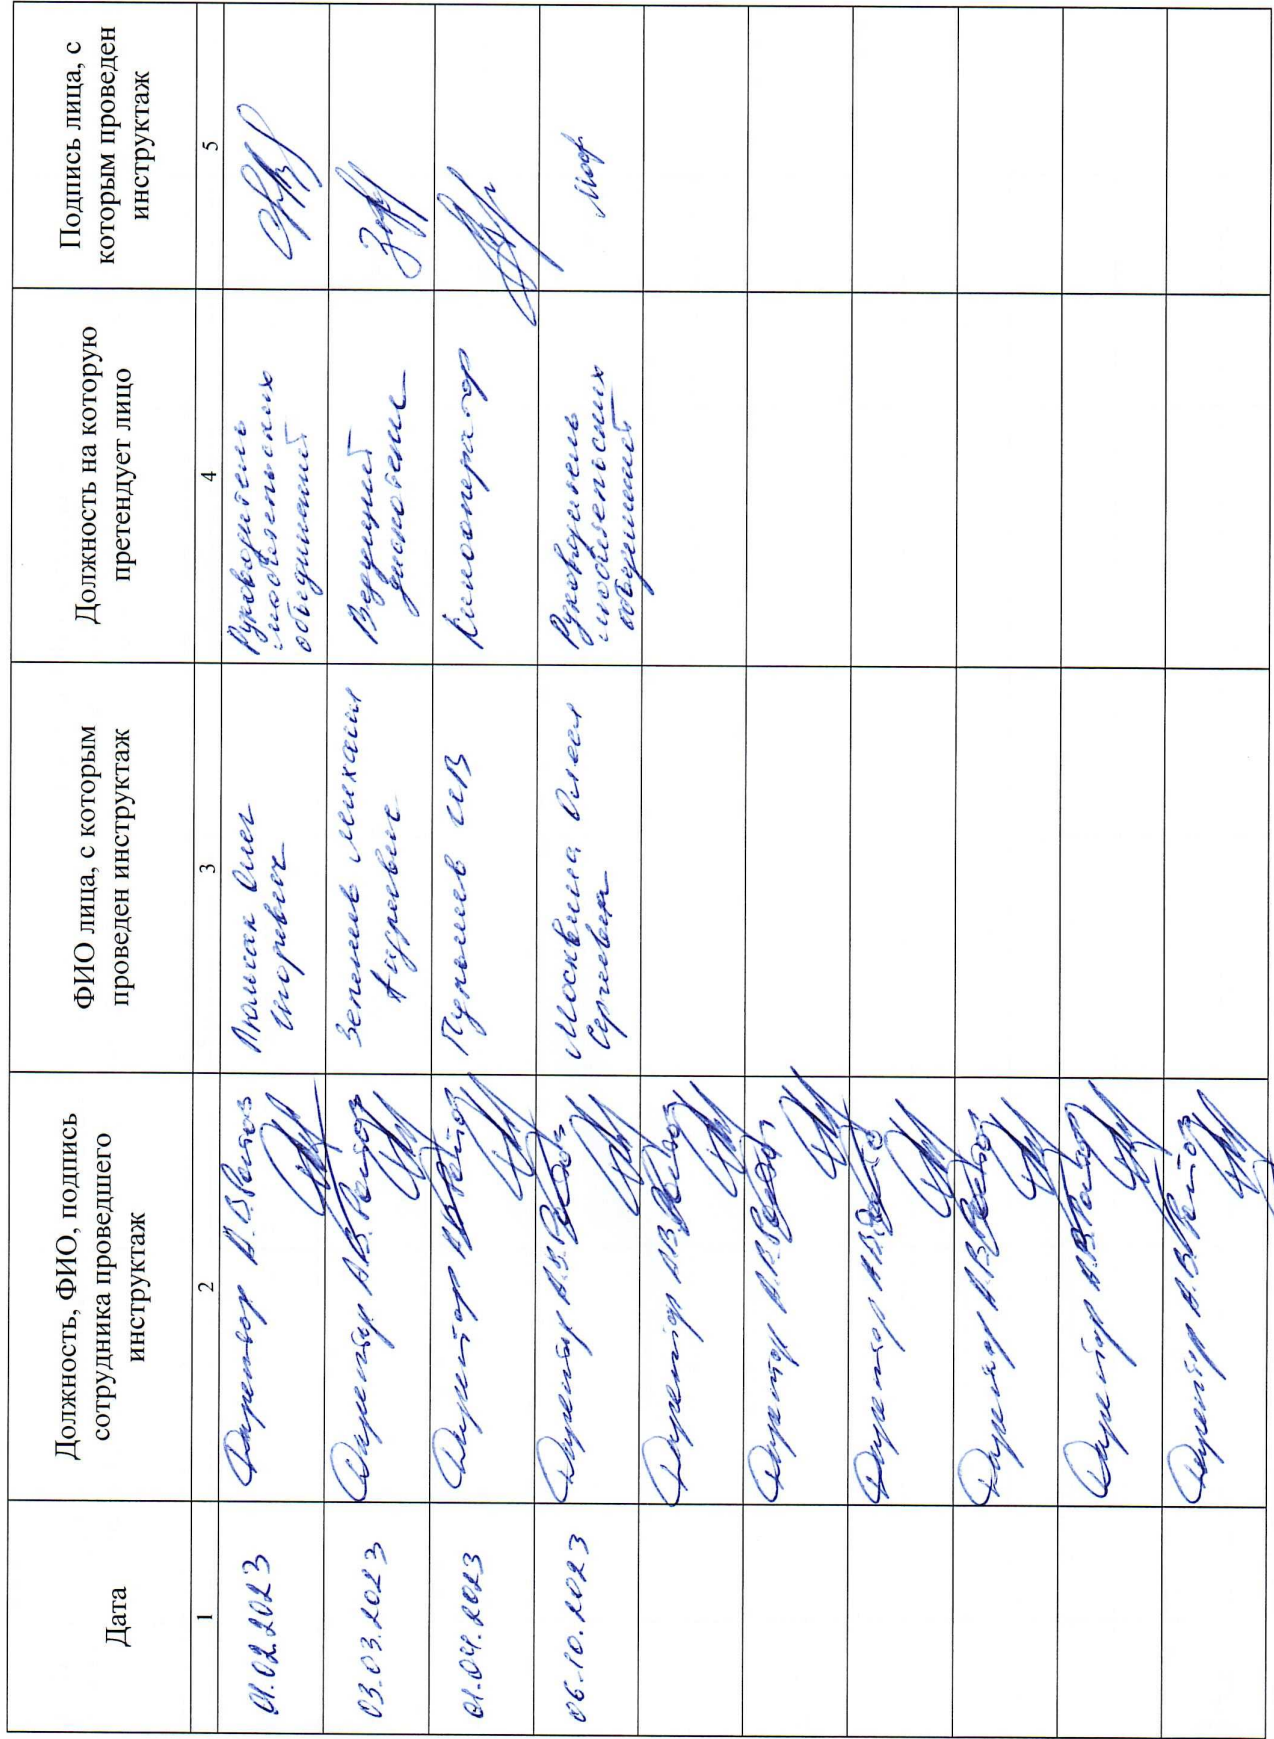 Дата
Должность, ФИО, подпись
сотрудника проведшего
инструктаж
ФИО лица, с которым
проведен инструктаж
Должность на которую
претендует лицо
Подпись лица, с
которым проведен
инструктаж
1
2
3
4
5
01.02.2023
Директор А.В.
Олег
Игоревич
Руководитель
любительских
объединений
03.03.2023
Директор А.В.
Михаил
Андреевич
Ведущий
дискотеки
01.04.2023
Директор А.В.
Кинооператор
06.10.2023
Директор А.В.
Москвина Олеся
Сергеевна
Руководитель
любительских
объединений
Директор А.В.
Директор А.В.
Директор А.В.
Директор А.В.
Директор А.В.
Директор А.В.